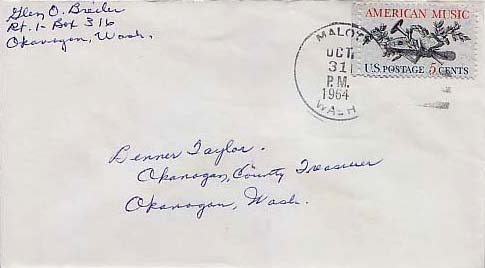 Glen O. Breiler
Rt. 1 - Box 316
Okanogan, Wash.
AMERICAN MUSIC
U.S. POSTAGE 5 CENTS
MALOTT
OCT
31
P.M.
1964
WASH
Benner Taylor.
Okanogan, County Treasurer
Okanogan, Wash.